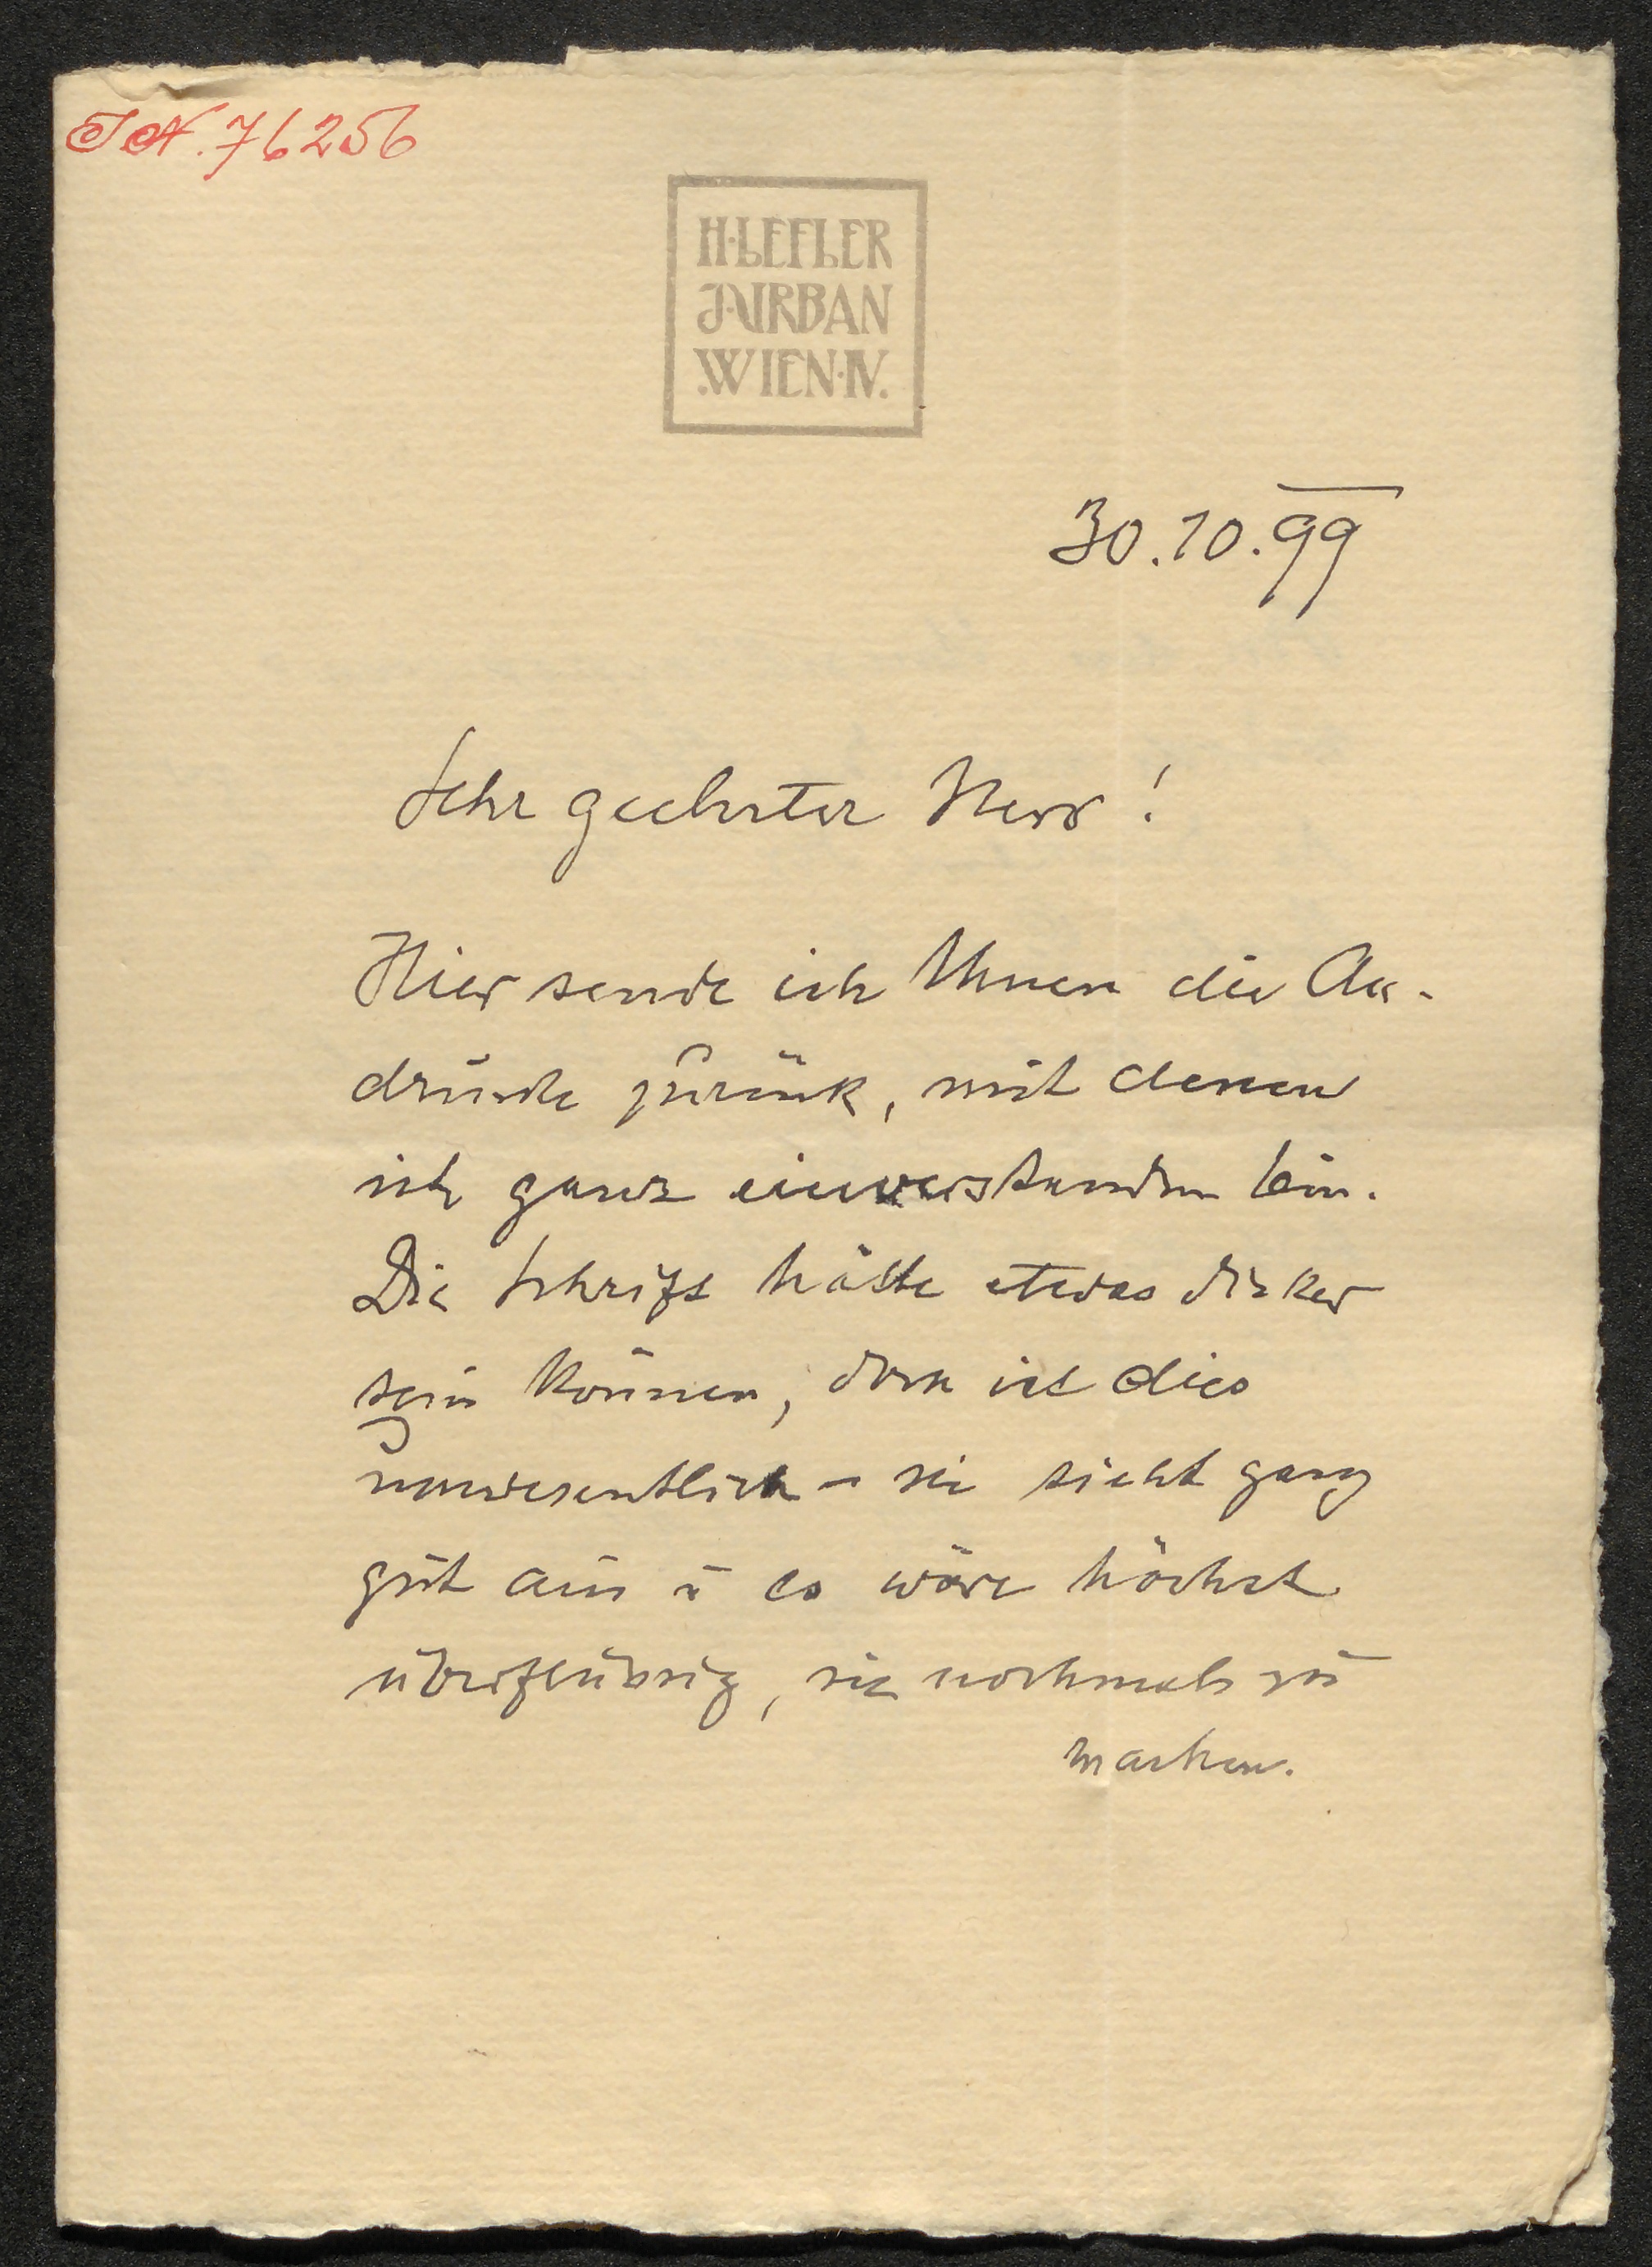 J.N. 76256
H·LEFLER
J·URBAN
·WIEN·IV.
30.10.99
Sehr geehrter Herr!
Hier sende ich Ihnen die An-
drücke zurück, mit denen
ich ganz einverstanden bin.
Die Schrift hätte etwas dicker
sein können, doch ist dies
unwesentlich – sie sieht ganz
gut aus u es wäre höchst
überflüssig, sie nochmals zu
machen.